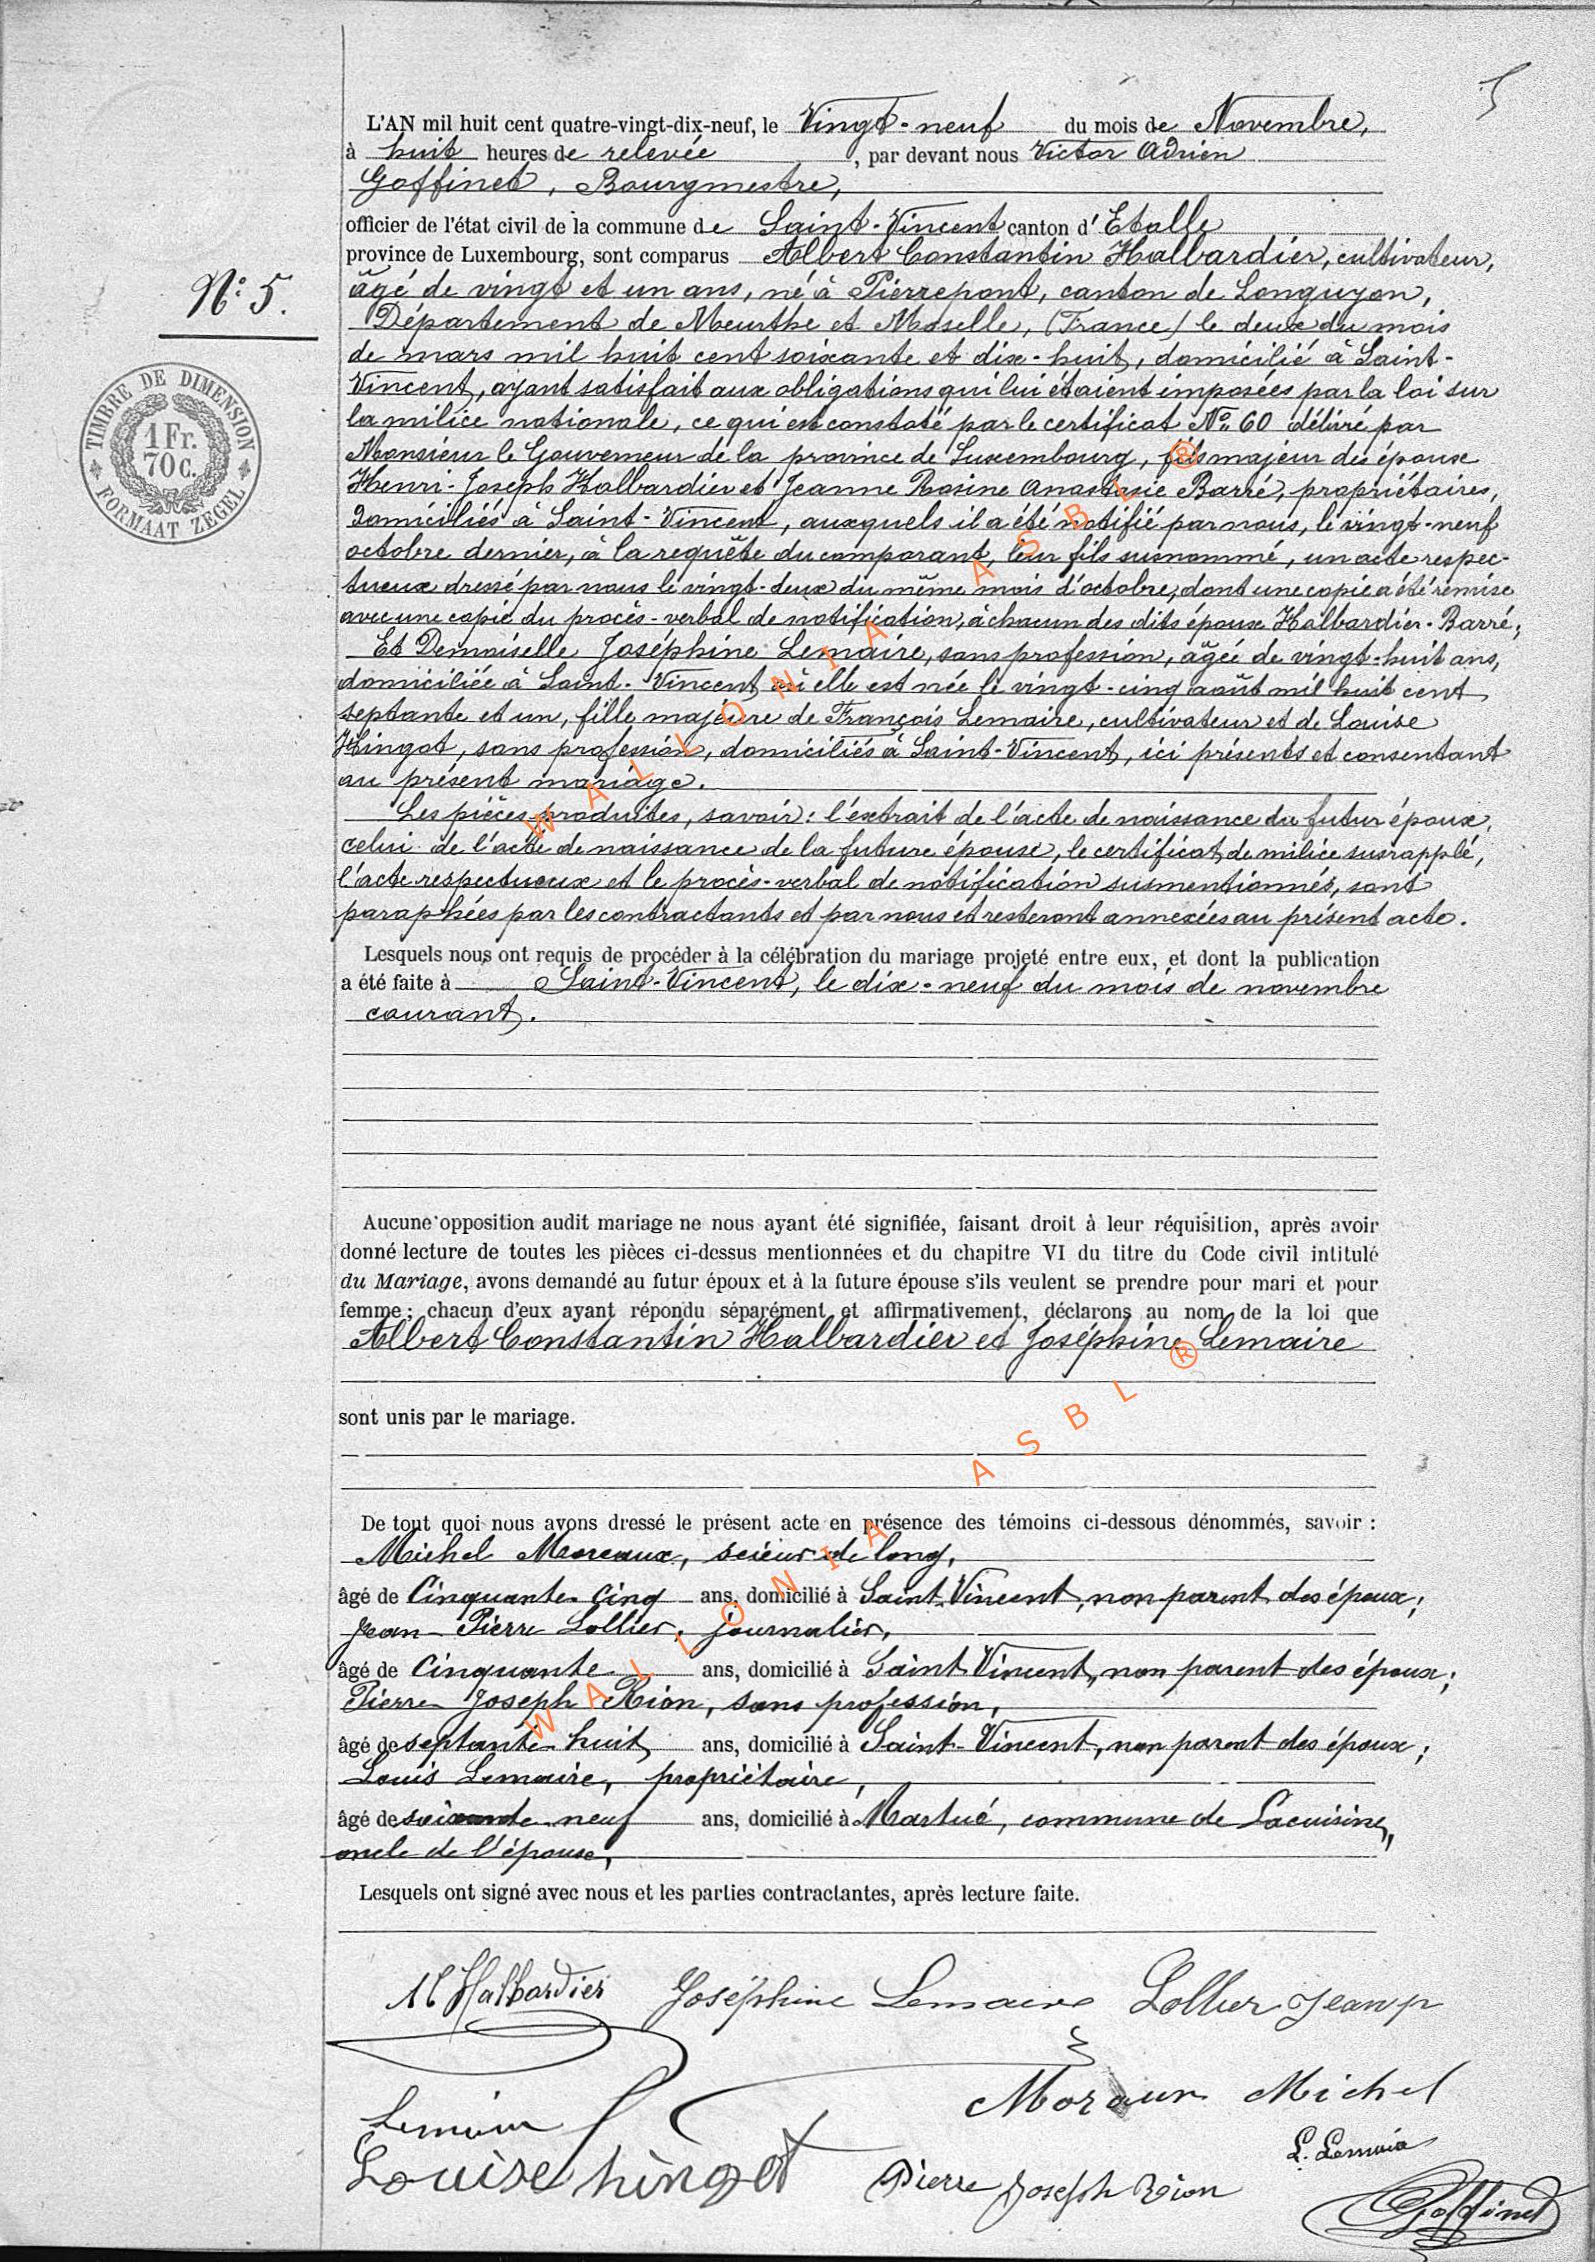 5
L'AN mil huit cent quatre-vingt-dix-neuf, le Vingt-neuf du mois de Novembre,
à huit heures de relevée, par devant nous Victor Adrien
Goffinet, Bourgmestre,
officier de l'état civil de la commune de Saint-Vincent canton d'Etalle
province de Luxembourg, sont comparus Albert Constantin Halbardier, cultivateur,
N° 5.
âgé de vingt et un ans, né à Pierrepont, canton de Longuyon,
Département de Meurthe et Moselle, (France) le deux du mois
de mars mil huit cent soixante et dix-huit, domicilié à Saint-
Vincent, ayant satisfait aux obligations qui lui étaient imposées par la loi sur
la milice nationale, ce qui est constaté par le certificat N° 60 délivré par
Monsieur le Gouverneur de la province de Luxembourg, fils majeur des époux
Henri-Joseph Halbardier et Jeanne Rosine Anastasie Barré, propriétaires,
domiciliés à Saint-Vincent, auxquels il a été notifié par nous, le vingt-neuf
octobre dernier, à la requête du comparant, leur fils susnommé, un acte respec-
tueux dressé par nous le vingt-deux du même mois d'octobre, dont une copie a été remise
avec une copie du procès-verbal de notification, à chacun des dits époux Halbardier-Barré;
TIMBRE DE DIMENSION
1 Fr.
70 C.
FORMAAT ZEGEL
Et Demoiselle Joséphine Lemaire, sans profession, âgée de vingt-huit ans,
domiciliée à Saint-Vincent où elle est née le vingt-cinq août mil huit cent
septante et un, fille majeure de François Lemaire, cultivateur et de Louise
Hingot, sans profession, domiciliés à Saint-Vincent, ici présents et consentant
au présent mariage.
Les pièces produites, savoir: l'extrait de l'acte de naissance du futur époux,
celui de l'acte de naissance de la future épouse, le certificat de milice susrapplé,
l'acte respectueux et le procès-verbal de notification susmentionnés, sont
paraphées par les contractants et par nous et resteront annexées au présent acte.
Lesquels nous ont requis de procéder à la célébration du mariage projeté entre eux, et dont la publication
a été faite à Saint-Vincent, le dix-neuf du mois de novembre
courant.
Aucune opposition audit mariage ne nous ayant été signifiée, faisant droit à leur réquisition, après avoir
donné lecture de toutes les pièces ci-dessus mentionnées et du chapitre VI du titre du Code civil intitulé
du Mariage, avons demandé au futur époux et à la future épouse s'ils veulent se prendre pour mari et pour
femme; chacun d'eux ayant répondu séparément et affirmativement, déclarons au nom de la loi que
Albert Constantin Halbardier et Joséphine Lemaire
sont unis par le mariage.
De tout quoi nous avons dressé le présent acte en présence des témoins ci-dessous dénommés, savoir :
Michel Moreaux, scieur de long,
âgé de Cinquante-cinq ans, domicilié à Saint-Vincent, non parent des époux;
Jean-Pierre Lollier, journalier,
âgé de Cinquante ans, domicilié à Saint-Vincent, non parent des époux;
Pierre Joseph Rion, sans profession,
âgé de septante-huit ans, domicilié à Saint-Vincent, non parent des époux;
Louis Lemaire, propriétaire,
âgé de soixante-neuf ans, domicilié à Martué, commune de Lacuisine,
oncle de l'épouse,
Lesquels ont signé avec nous et les parties contractantes, après lecture faite.
Halbardier Joséphine Lemaire Lollier Jean P
Michel
Lemaire
L. Lemaire
Louise hingot Pierre Joseph Rion
Goffinet
WALLONIA ASBL ®
WALLONIA ASBL ®